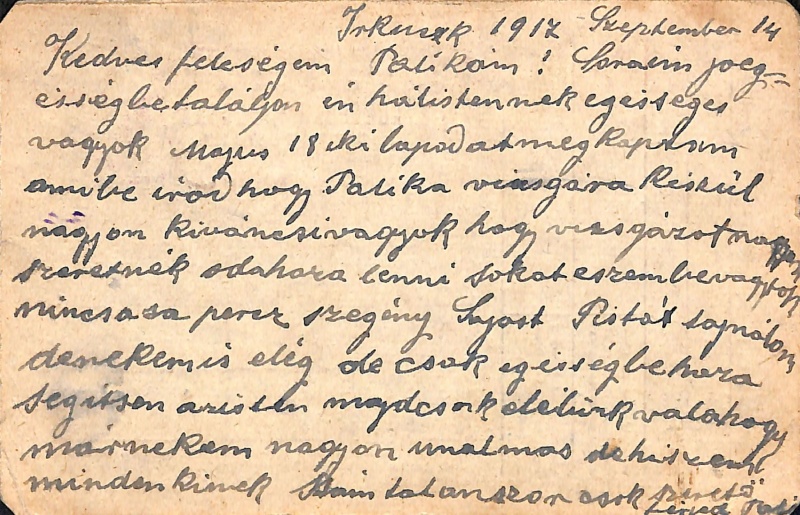 Irkuczk 1917 - Szeptember 14
Kedves feleségem Palikám! Soraim joeg=
eisségbetaláljon én hálistennek egeisseges
vagyok Majus 18 iki lapodat megkaptam
amibe irod hogy Palika vizsgára készül
nagyon kiváncsivagyok hogy vizsgázot nagyon
szeretnék odahaza lenni sokateszembevagytok
nincsasa percz szegény Pistát sajnálom
denekemis elég de csak egisségbehaza
segitsen azisten majdcsak elélünk valahogy
márnekem nagyon unalmas dehiszem
mindenkinek Számtalanszor csok szerető
férjed Pali